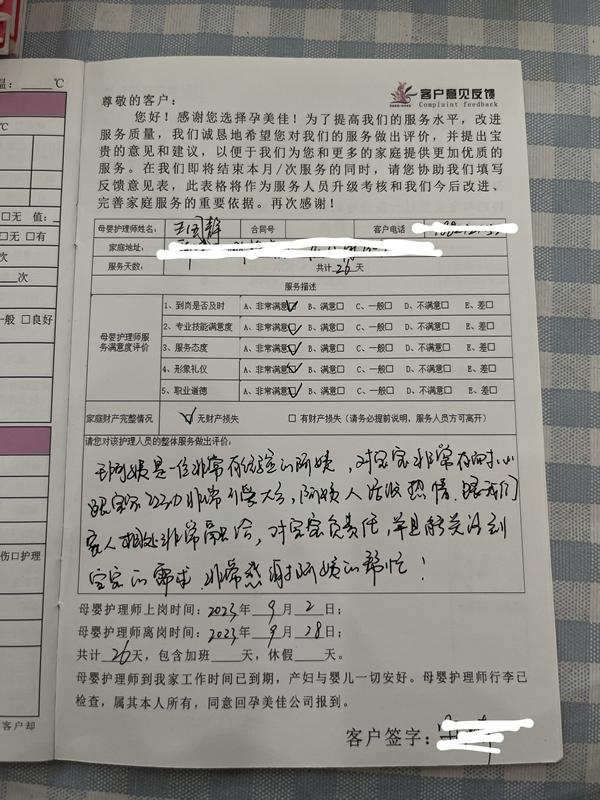 温：____℃
客户意见反馈
Complaint feedback
尊敬的客户：
您好！感谢您选择孕美佳！为了提高我们的服务水平，改进
服务质量，我们诚恳地希望您对我们的服务做出评价，并提出宝
贵的意见和建议，以便于我们为您和更多的家庭提供更加优质的
服务。在我们即将结束本月/次服务的同时，请您协助我们填写
反馈意见表，此表格将作为服务人员升级考核和我们今后改进、
完善家庭服务的重要依据。再次感谢！
母婴护理师姓名： 王国静 合同号 客户电话
家庭地址：
服务天数： 共计26天
服务描述
母婴护理师服务满意度评价
1、到岗是否及时 A、非常满意☑ B、满意□ C、一般□ D、不满意□ E、差□
2、专业技能满意度 A、非常满意☑ B、满意□ C、一般□ D、不满意□ E、差□
3、服务态度 A、非常满意☑ B、满意□ C、一般□ D、不满意□ E、差□
4、形象礼仪 A、非常满意☑ B、满意□ C、一般□ D、不满意□ E、差□
5、职业道德 A、非常满意☑ B、满意□ C、一般□ D、不满意□ E、差□
家庭财产完整情况 ☑ 无财产损失 □ 有财产损失（请务必提前说明，服务人员方可离开）
请您对该护理人员的整体服务做出评价：
王阿姨是一位非常有经验的阿姨，对宝宝非常有耐心
跟宝宝互动非常，阿姨人活泼热情，跟我们
家人相处非常融洽，对宝宝负责任，并且能关注到
宝宝的需求，非常感谢阿姨的帮忙！
母婴护理师上岗时间：2023年 9月 2日；
母婴护理师离岗时间：2023年 9月 28日；
共计26天，包含加班____天，休假____天。
母婴护理师到我家工作时间已到期，产妇与婴儿一切安好。母婴护理师行李已
检查，属其本人所有，同意回孕美佳公司报到。
客户签字：
℃
□无 值：
□无 □有
次
一般 □良好
伤口护理
客户却